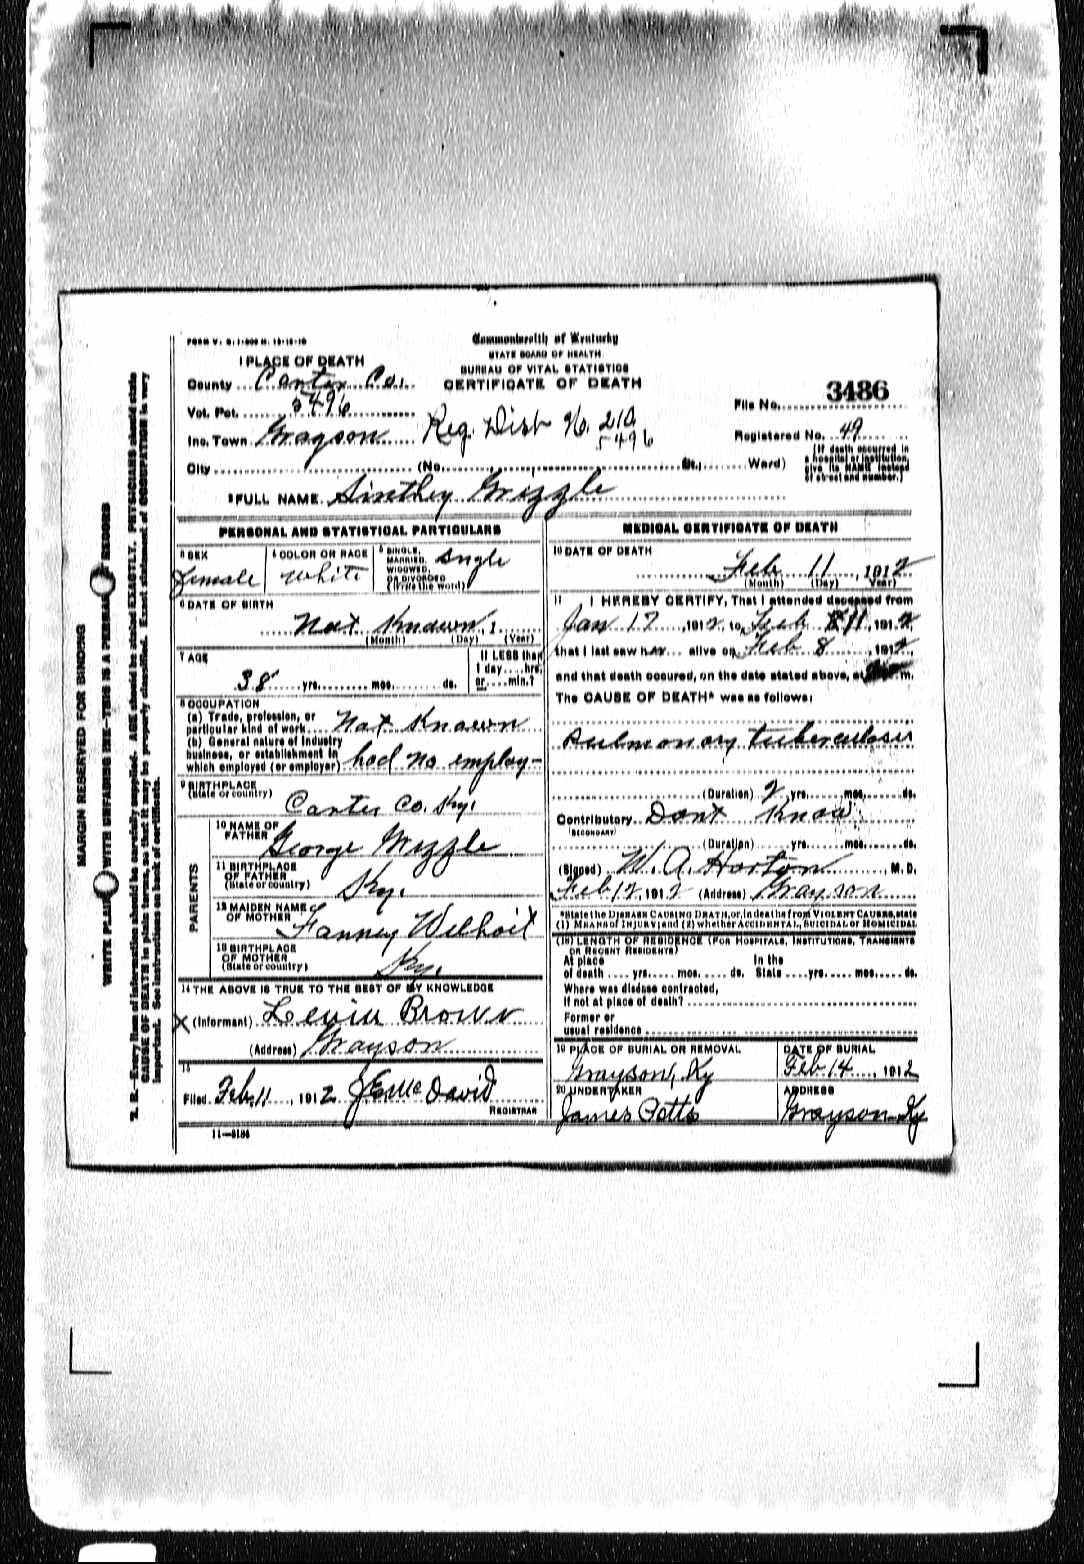 FORM V. S. 1-500 M. 12-15-10
Commonwealth of Kentucky
STATE BOARD OF HEALTH
BUREAU OF VITAL STATISTICS
CERTIFICATE OF DEATH
1 PLACE OF DEATH
County Carter Co.
Vot. Pct. 5496
Inc. Town Grayson
Reg. Dist No. 210
5496
File No. 3486
Registered No. 49
City (No. St.; Ward)
(If death occurred in
a hospital or institution,
give its NAME instead
of street and number.)
2 FULL NAME Sinthey Grizzle
PERSONAL AND STATISTICAL PARTICULARS
3 SEX
female
4 COLOR OR RACE
white
5 SINGLE,
MARRIED,
WIDOWED,
OR DIVORCED
(Write the word)
Single
6 DATE OF BIRTH
Not Known, 1
(Month) (Day) (Year)
7 AGE
38 yrs. mos. ds.
If LESS than
1 day hrs.
or min.?
8 OCCUPATION
(a) Trade, profession, or
particular kind of work Not Known
(b) General nature of industry
business, or establishment in
which employed (or employer) had no employ-
9 BIRTHPLACE
(State or country) Carter Co. Ky.
PARENTS
10 NAME OF
FATHER George Grizzle
11 BIRTHPLACE
OF FATHER
(State or country) Ky.
12 MAIDEN NAME
OF MOTHER Fanney Welhoit
13 BIRTHPLACE
OF MOTHER
(State or country) Ky.
14 THE ABOVE IS TRUE TO THE BEST OF MY KNOWLEDGE
X (Informant) Levin Brown
(Address) Grayson
15
Filed Feb. 11, 1912 J E McDavid
REGISTRAR
11-3184
MEDICAL CERTIFICATE OF DEATH
16 DATE OF DEATH
Feb 11, 1912
(Month) (Day) Year
17 I HEREBY CERTIFY, That I attended deceased from
Jan 17, 1912, to Feb 11, 1912,
that I last saw her alive on Feb 8, 1912,
and that death occured, on the date stated above, at m.
The CAUSE OF DEATH* was as follows:
Pulmonary tuberculosis
(Duration) 2 yrs. mos. ds.
Contributory Dont Know
(SECONDARY)
(Duration) yrs. mos. ds.
(Signed) W. A. Horton, M. D.
Feb 12, 1912 (Address) Grayson
*State the DISEASE CAUSING DEATH, or, in deaths from VIOLENT CAUSES, state
(1) MEANS OF INJURY; and (2) whether ACCIDENTAL, SUICIDAL or HOMICIDAL
(18) LENGTH OF RESIDENCE (FOR HOSPITALS, INSTITUTIONS, TRANSIENTS
OR RECENT RESIDENTS)
At place In the
of death yrs. mos. ds. State yrs. mos. ds.
Where was disease contracted,
If not at place of death?
Former or
usual residence
19 PLACE OF BURIAL OR REMOVAL
Grayson, Ky
DATE OF BURIAL
Feb 14, 1912
20 UNDERTAKER
James Potts
ADDRESS
Grayson Ky
MARGIN RESERVED FOR BINDING
WRITE PLAINLY WITH UNFADING INK—THIS IS A PERMANENT RECORD
N. B.—Every item of information should be carefully supplied. AGE should be stated EXACTLY. PHYSICIANS should state
CAUSE OF DEATH in plain terms, so that it may be properly classified. Exact statement of OCCUPATION is very
important. See instructions on back of certificate.